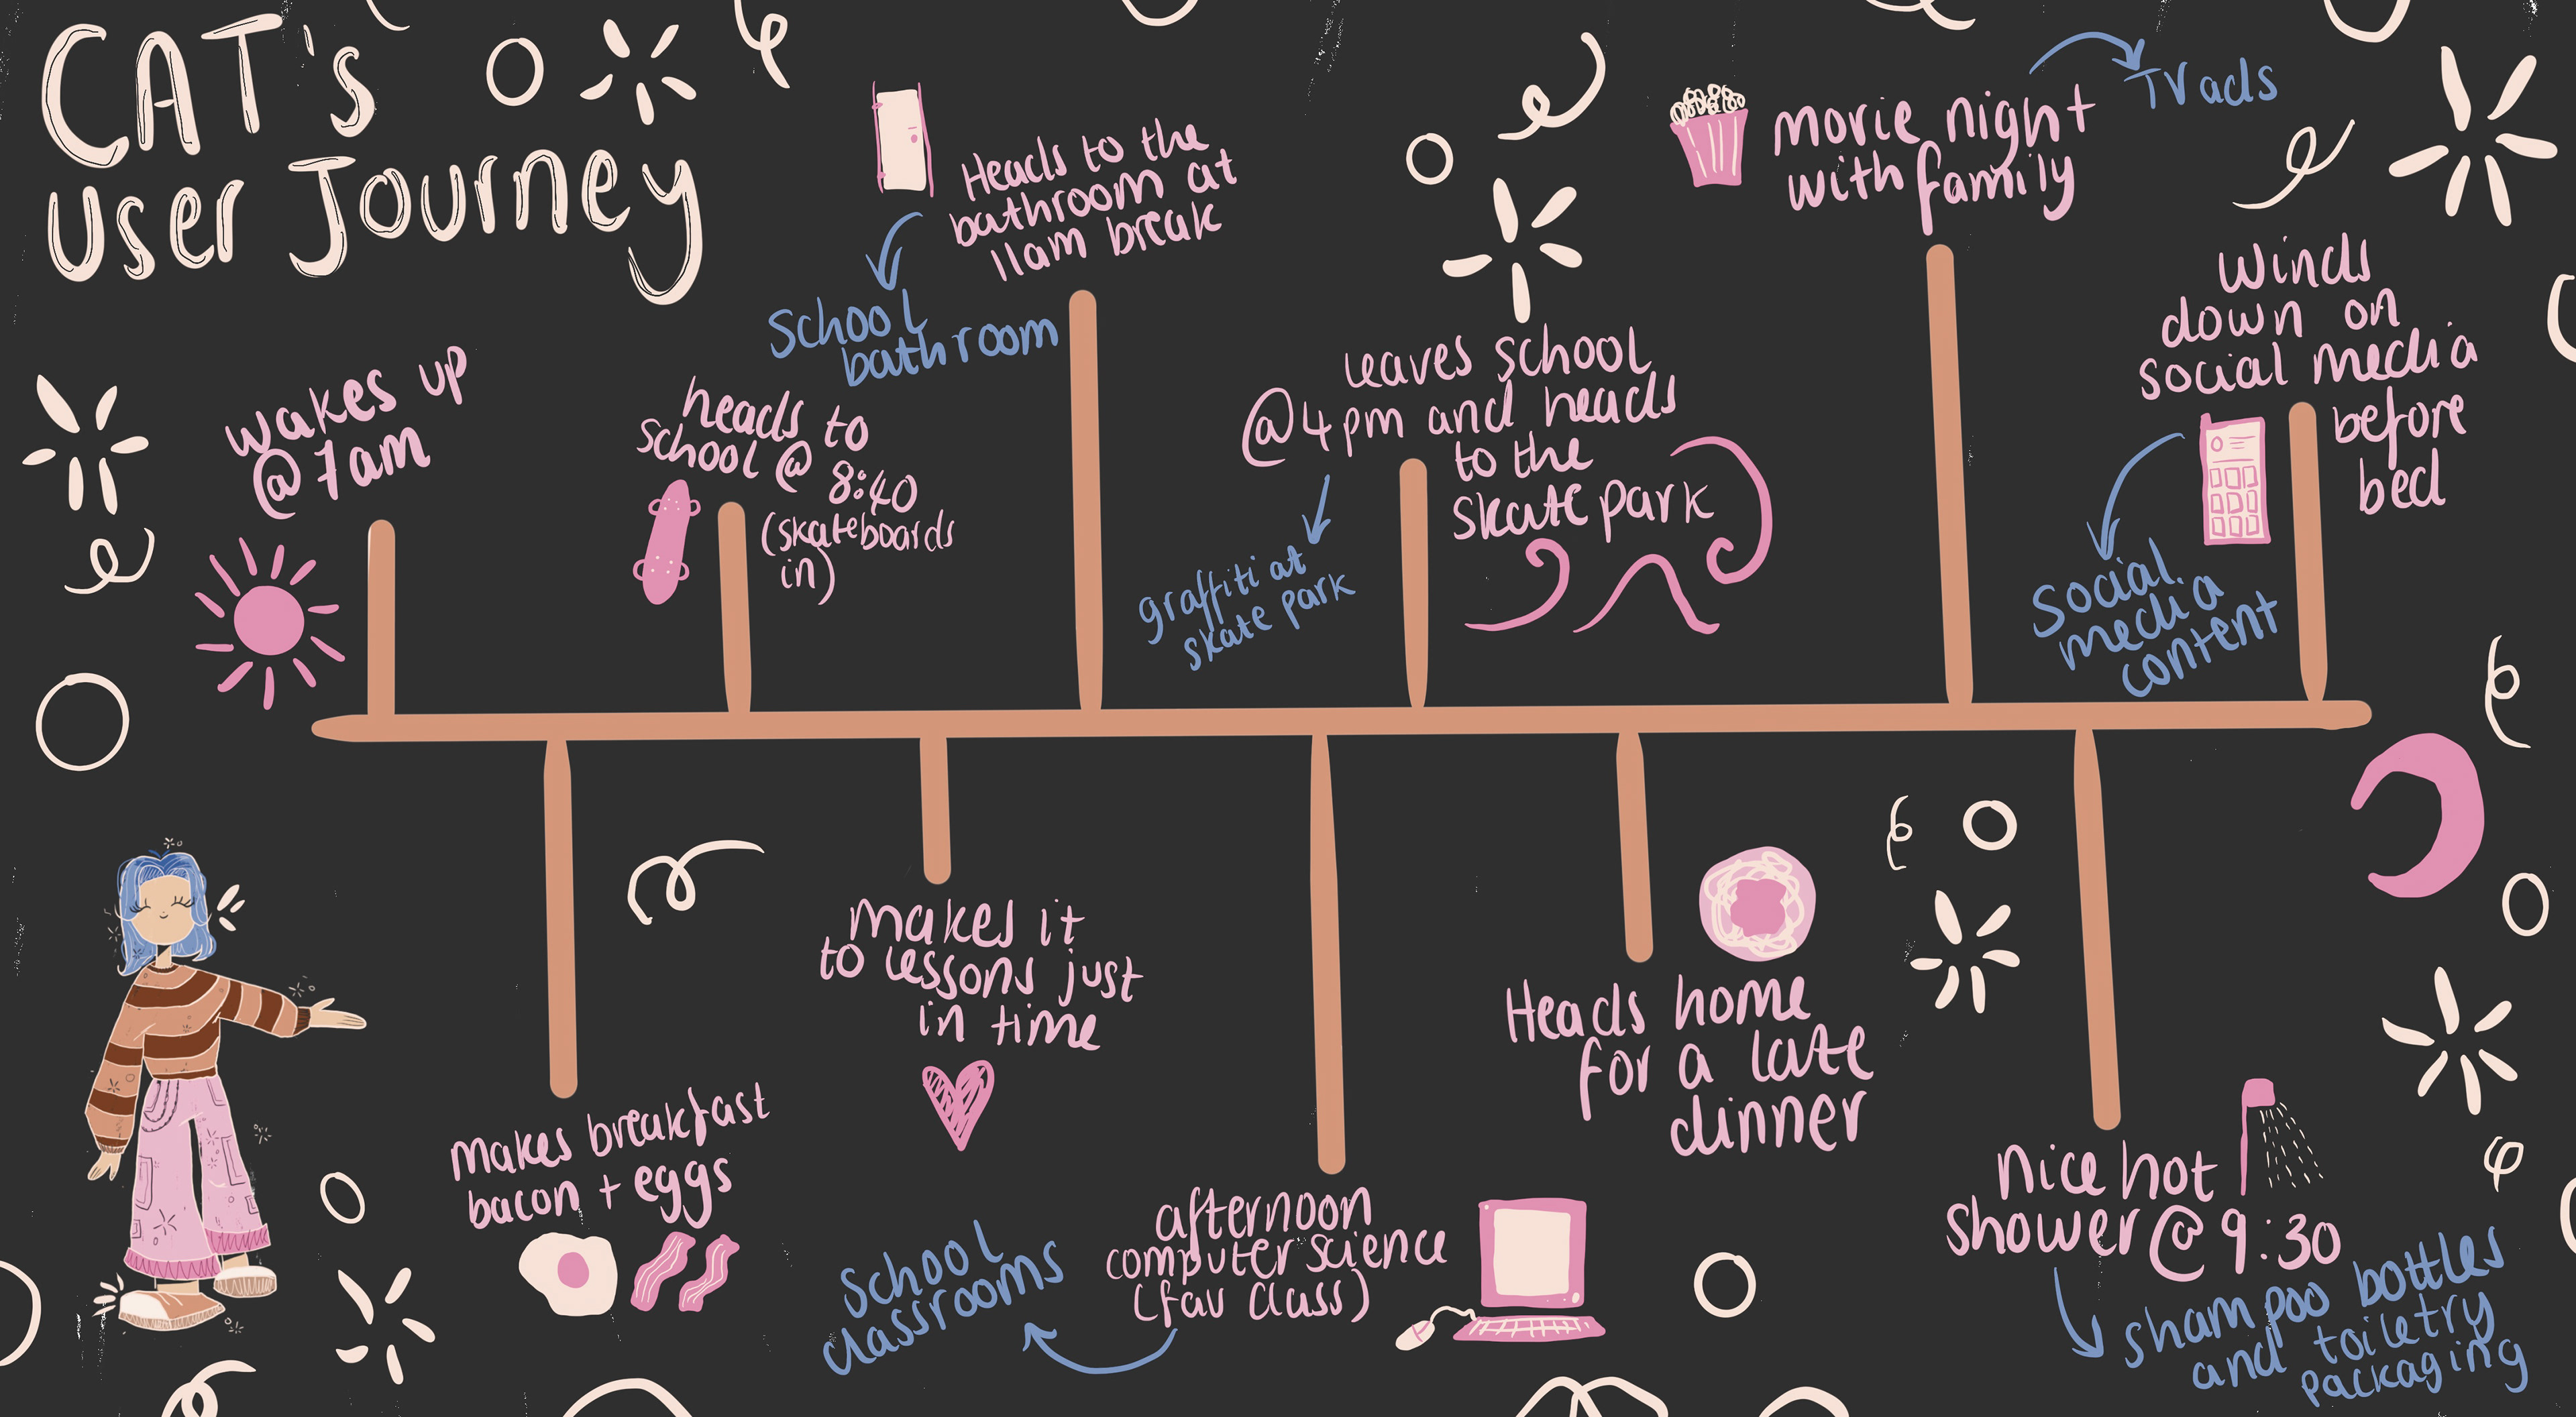 CAT's
User Journey
wakes up
@ 7am
makes breakfast
bacon + eggs
heads to
school @ 8:40
(skateboards
in)
makes it
to lessons just
in time
Heads to the
bathroom at
11am break
School
bathroom
afternoon
computer science
(fav class)
School
classrooms
leaves school
@ 4pm and heads
to the
skate park
graffiti at
skate park
Heads home
for a late
dinner
movie night
with family
TV ads
nice hot
shower @ 9:30
shampoo bottles
and toiletry
packaging
Winds
down on
social media
before
bed
Social
media
content